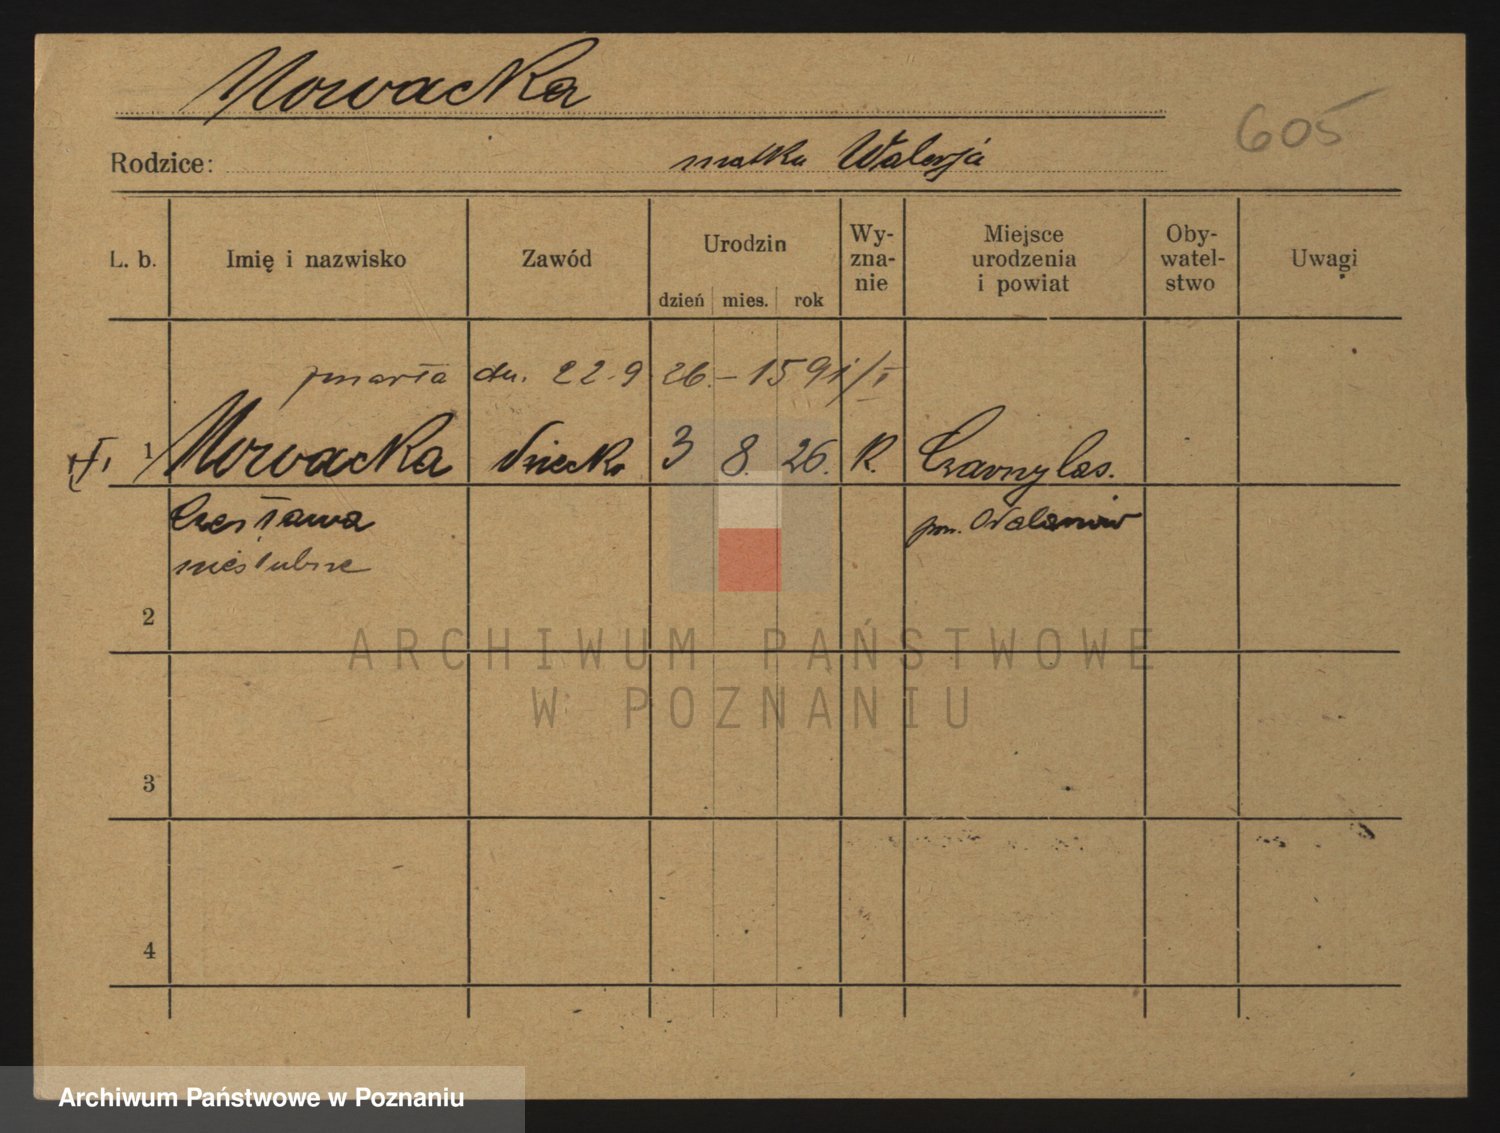 Nowacka
605
Rodzice: matka Walerja
L. b. Imię i nazwisko Zawód Urodzin Wy-zna-nie Miejsce urodzenia i powiat Oby-watel-stwo Uwagi
dzień mies. rok
zmarła dn. 22.9.26. – 1591/I
1 Nowacka dziecko 3 8. 26. K. Czarnylas.
Czesława pow. Odolanów
nieślubne
2
ARCHIWUM PAŃSTWOWE
W POZNANIU
3
4
Archiwum Państwowe w Poznaniu